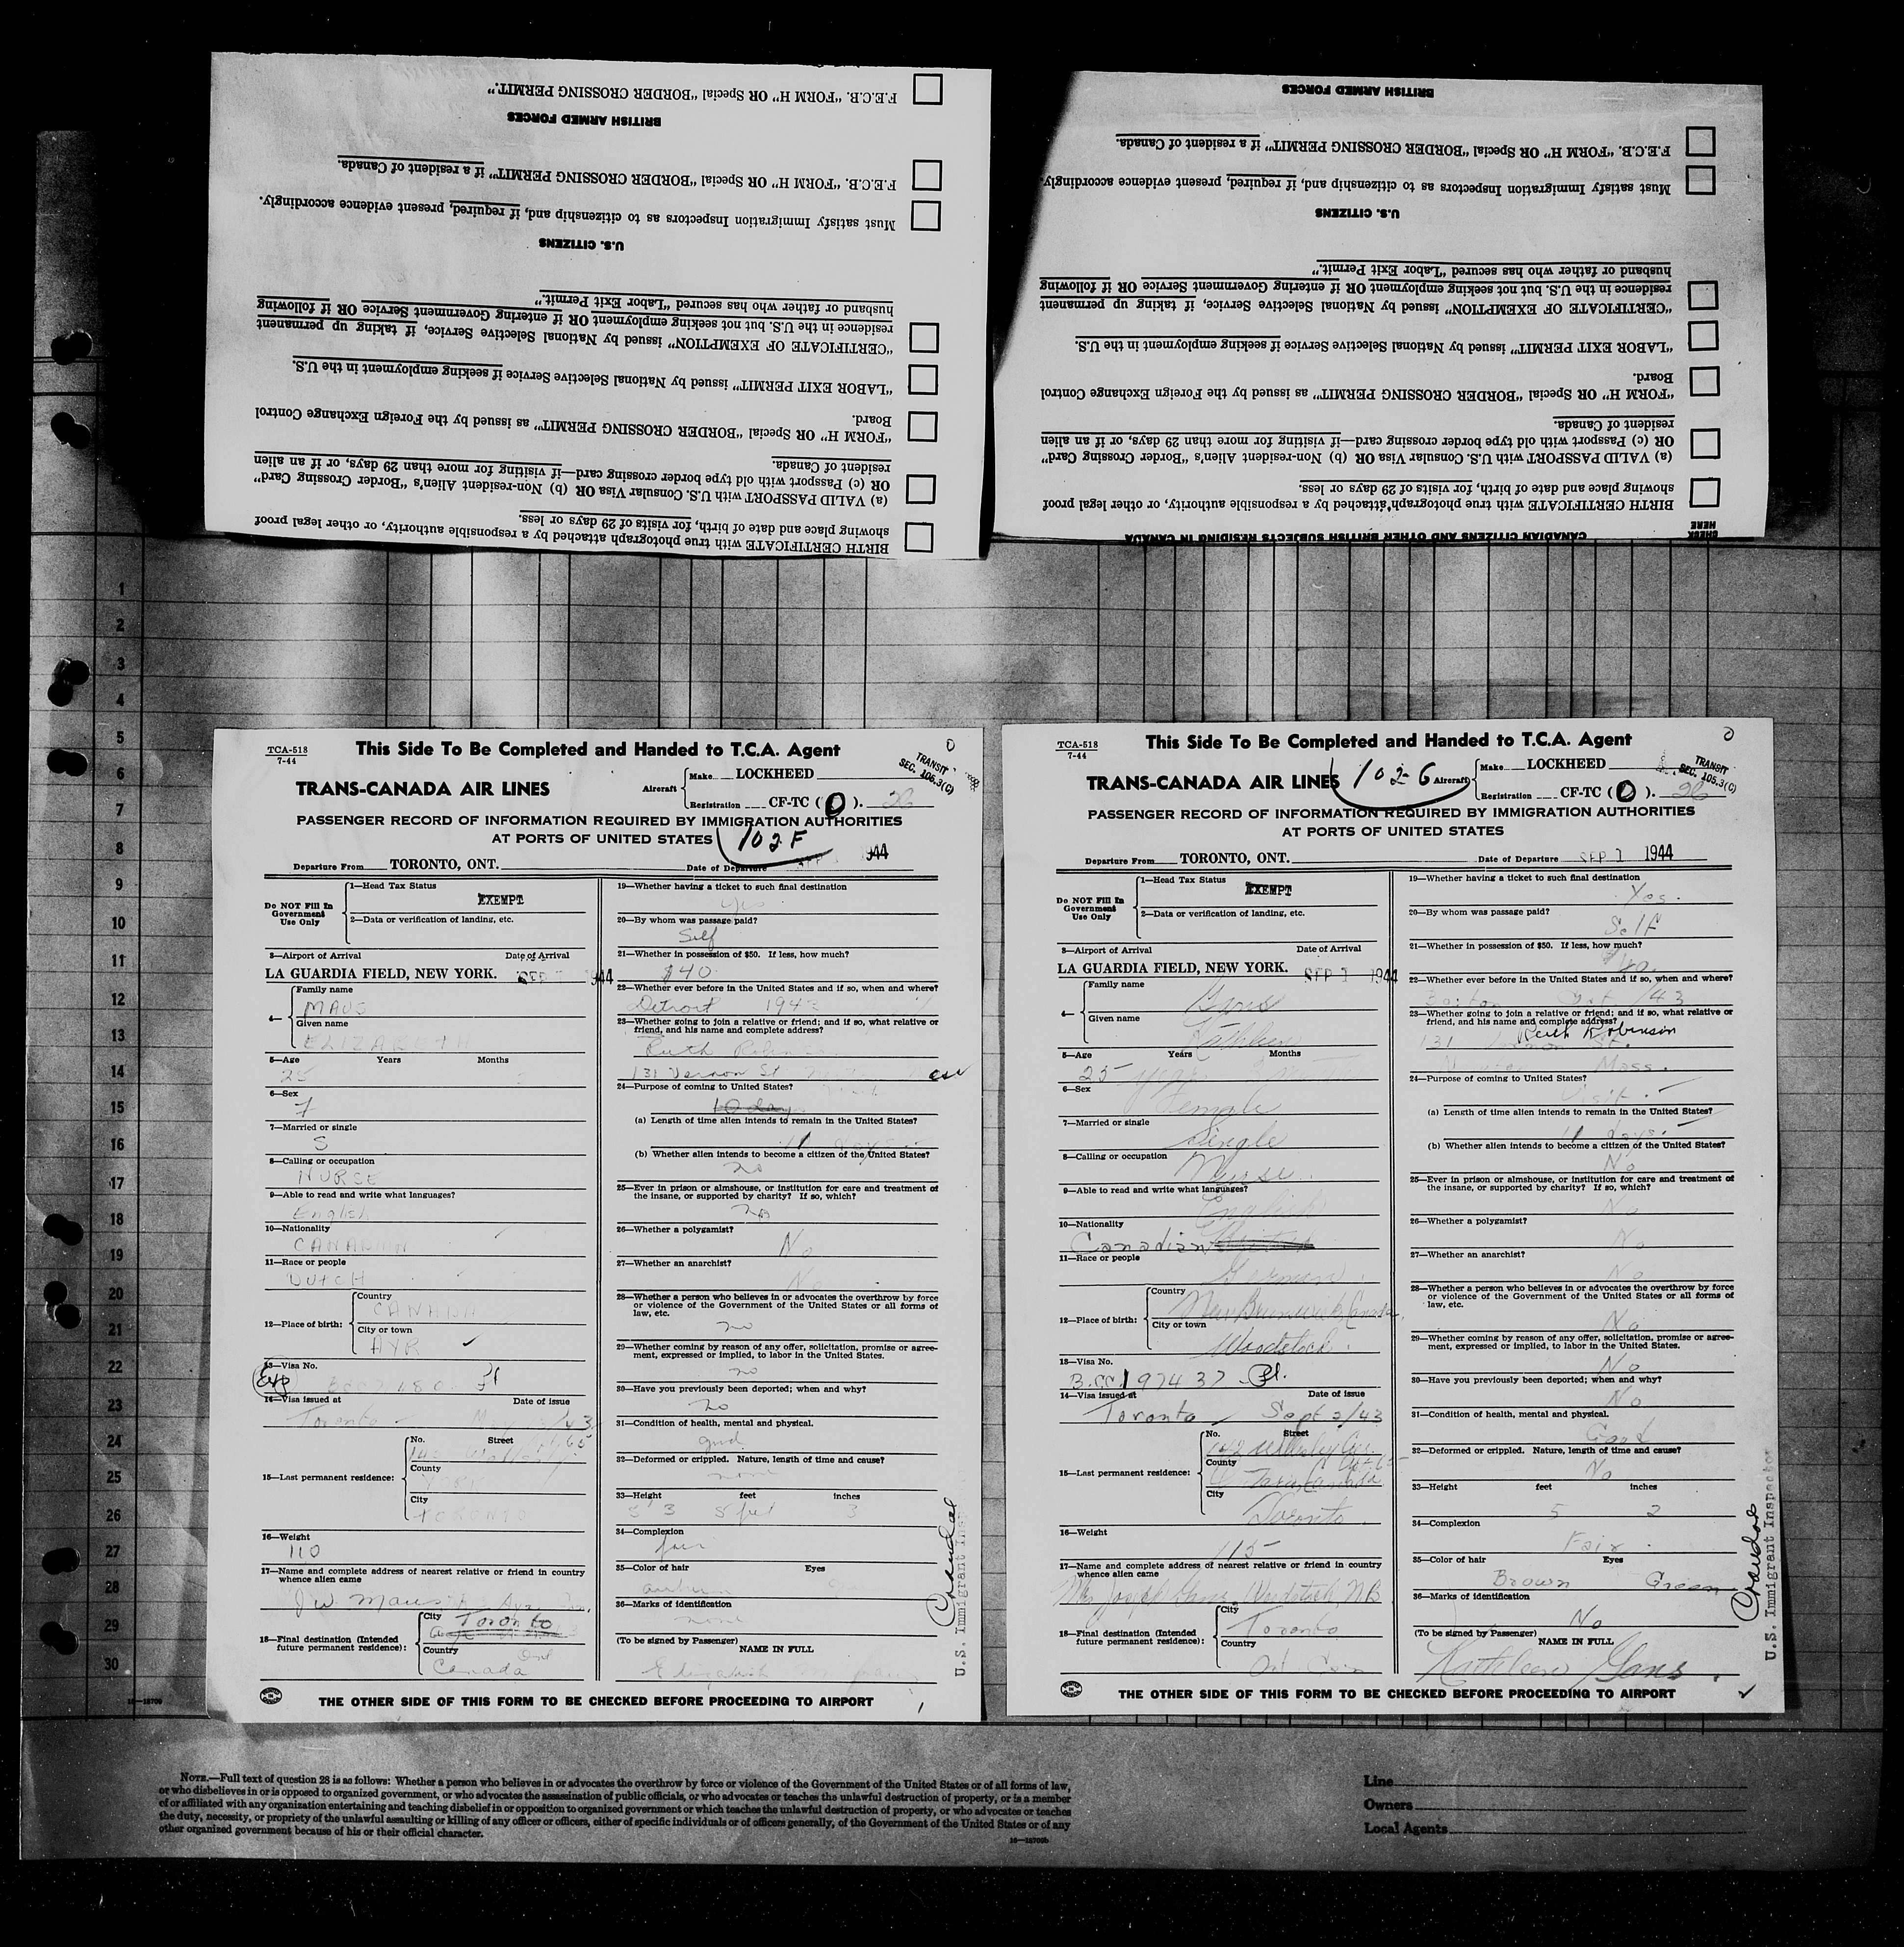 F.E.C.B. "FORM H" OR Special "BORDER CROSSING PERMIT."
BRITISH ARMED FORCES
F.E.C.B. "FORM H" OR Special "BORDER CROSSING PERMIT" if a resident of Canada.
Must satisfy Immigration Inspectors as to citizenship and, if required, present evidence accordingly.
U.S. CITIZENS
husband or father who has secured "Labor Exit Permit."
residence in the U.S. but not seeking employment OR if entering Government Service OR if following
"CERTIFICATE OF EXEMPTION" issued by National Selective Service, if taking up permanent
"LABOR EXIT PERMIT" issued by National Selective Service if seeking employment in the U.S.
Board.
"FORM H" OR Special "BORDER CROSSING PERMIT" as issued by the Foreign Exchange Control
resident of Canada.
OR (c) Passport with old type border crossing card—if visiting for more than 29 days, or if an alien
(a) VALID PASSPORT with U.S. Consular Visa OR (b) Non-resident Alien's "Border Crossing Card"
showing place and date of birth, for visits of 29 days or less.
BIRTH CERTIFICATE with true photograph attached by a responsible authority, or other legal proof
BRITISH ARMED FORCES
F.E.C.B. "FORM H" OR Special "BORDER CROSSING PERMIT" if a resident of Canada.
Must satisfy Immigration Inspectors as to citizenship and, if required, present evidence accordingly.
U.S. CITIZENS
husband or father who has secured "Labor Exit Permit."
residence in the U.S. but not seeking employment OR if entering Government Service OR if following
"CERTIFICATE OF EXEMPTION" issued by National Selective Service, if taking up permanent
"LABOR EXIT PERMIT" issued by National Selective Service if seeking employment in the U.S.
Board.
"FORM H" OR Special "BORDER CROSSING PERMIT" as issued by the Foreign Exchange Control
resident of Canada.
OR (c) Passport with old type border crossing card—if visiting for more than 29 days, or if an alien
(a) VALID PASSPORT with U.S. Consular Visa OR (b) Non-resident Alien's "Border Crossing Card"
showing place and date of birth, for visits of 29 days or less.
BIRTH CERTIFICATE with true photograph attached by a responsible authority, or other legal proof
CHECK HERE
CANADIAN CITIZENS AND OTHER BRITISH SUBJECTS RESIDING IN CANADA
1
2
3
4
5
6
7
8
9
10
11
12
13
14
15
16
17
18
19
20
21
22
23
24
25
26
27
28
29
30
TCA-518
7-44
This Side To Be Completed and Handed to T.C.A. Agent
TRANSIT
SEC. 105.3(C)
TRANS-CANADA AIR LINES
Aircraft
Make LOCKHEED
Registration CF-TC (O). 26
PASSENGER RECORD OF INFORMATION REQUIRED BY IMMIGRATION AUTHORITIES
AT PORTS OF UNITED STATES
102F
Departure From TORONTO, ONT.
Date of Departure 1944
Do NOT Fill In Government Use Only
1—Head Tax Status
EXEMPT
2—Data or verification of landing, etc.
3—Airport of Arrival Date of Arrival
LA GUARDIA FIELD, NEW YORK. 1944
4—
Family name
MAUS
Given name
ELIZABETH
5—Age Years Months
25
6—Sex
F
7—Married or single
S
8—Calling or occupation
NURSE
9—Able to read and write what languages?
English
10—Nationality
CANADIAN
11—Race or people
DUTCH
12—Place of birth:
Country
CANADA
City or town
AYR
13—Visa No.
14—Visa issued at Date of issue
Toronto
15—Last permanent residence:
No. Street
County
City
TORONTO
16—Weight
110
17—Name and complete address of nearest relative or friend in country
whence alien came
J W Maus
18—Final destination (Intended
future permanent residence):
City
Toronto
Country
Ont
Canada
19—Whether having a ticket to such final destination
Yes
20—By whom was passage paid?
Self
21—Whether in possession of $50. If less, how much?
$40
22—Whether ever before in the United States and if so, when and where?
Detroit 1943
23—Whether going to join a relative or friend; and if so, what relative or
friend, and his name and complete address?
Ruth
131 Vernon St
24—Purpose of coming to United States?
10 days
(a) Length of time alien intends to remain in the United States?
11 days
(b) Whether alien intends to become a citizen of the United States?
no
25—Ever in prison or almshouse, or institution for care and treatment of
the insane, or supported by charity? If so, which?
no
26—Whether a polygamist?
No
27—Whether an anarchist?
No
28—Whether a person who believes in or advocates the overthrow by force
or violence of the Government of the United States or all forms of
law, etc.
no
29—Whether coming by reason of any offer, solicitation, promise or agree-
ment, expressed or implied, to labor in the United States.
no
30—Have you previously been deported; when and why?
no
31—Condition of health, mental and physical.
good
32—Deformed or crippled. Nature, length of time and cause?
none
33—Height feet inches
34—Complexion
fair
35—Color of hair Eyes
auburn
36—Marks of identification
none
(To be signed by Passenger)
NAME IN FULL
Elizabeth
U.S. Immigrant
Crandal
THE OTHER SIDE OF THIS FORM TO BE CHECKED BEFORE PROCEEDING TO AIRPORT
TCA-518
7-44
This Side To Be Completed and Handed to T.C.A. Agent
TRANSIT
SEC. 105.3(C)
TRANS-CANADA AIR LINES
102-G
Aircraft
Make LOCKHEED
Registration CF-TC (O). 26
PASSENGER RECORD OF INFORMATION REQUIRED BY IMMIGRATION AUTHORITIES
AT PORTS OF UNITED STATES
Departure From TORONTO, ONT.
Date of Departure SEP 1 1944
Do NOT Fill In Government Use Only
1—Head Tax Status
EXEMPT
2—Data or verification of landing, etc.
3—Airport of Arrival Date of Arrival
LA GUARDIA FIELD, NEW YORK. SEP 1 1944
4—
Family name
Gans
Given name
Kathleen
5—Age Years Months
25 years
6—Sex
Female
7—Married or single
Single
8—Calling or occupation
Nurse
9—Able to read and write what languages?
English
10—Nationality
Canadian
11—Race or people
German
12—Place of birth:
Country
New Brunswick, Canada
City or town
Woodstock
13—Visa No.
B.CC 197437
14—Visa issued at Date of issue
Toronto Sept 2/43
15—Last permanent residence:
No. Street
142 Wellesley
County
City
Toronto
16—Weight
115
17—Name and complete address of nearest relative or friend in country
whence alien came
Joseph Gans, Woodstock, NB
18—Final destination (Intended
future permanent residence):
City
Toronto
Country
Ont
19—Whether having a ticket to such final destination
Yes.
20—By whom was passage paid?
Self
21—Whether in possession of $50. If less, how much?
22—Whether ever before in the United States and if so, when and where?
Boston /43
23—Whether going to join a relative or friend; and if so, what relative or
friend, and his name and complete address?
Ruth Robinson
131 St.
Mass.
24—Purpose of coming to United States?
Visit
(a) Length of time alien intends to remain in the United States?
11 days.
(b) Whether alien intends to become a citizen of the United States?
No
25—Ever in prison or almshouse, or institution for care and treatment of
the insane, or supported by charity? If so, which?
No
26—Whether a polygamist?
No
27—Whether an anarchist?
No
28—Whether a person who believes in or advocates the overthrow by force
or violence of the Government of the United States or all forms of
law, etc.
No
29—Whether coming by reason of any offer, solicitation, promise or agree-
ment, expressed or implied, to labor in the United States.
No
30—Have you previously been deported; when and why?
No
31—Condition of health, mental and physical.
Good
32—Deformed or crippled. Nature, length of time and cause?
No
33—Height feet inches
5 2
34—Complexion
Fair
35—Color of hair Eyes
Brown Green
36—Marks of identification
No
(To be signed by Passenger)
NAME IN FULL
Kathleen Gans.
U.S. Immigrant Inspector
Crandal
THE OTHER SIDE OF THIS FORM TO BE CHECKED BEFORE PROCEEDING TO AIRPORT
NOTE.—Full text of question 28 is as follows: Whether a person who believes in or advocates the overthrow by force or violence of the Government of the United States or of all forms of law,
or who disbelieves in or is opposed to organized government, or who advocates the assassination of public officials, or who advocates or teaches the unlawful destruction of property, or is a member
of or affiliated with any organization entertaining and teaching disbelief in or opposition to organized government or which teaches the unlawful destruction of property, or who advocates or teaches
the duty, necessity, or propriety of the unlawful assaulting or killing of any officer or officers, either of specific individuals or of officers generally, of the Government of the United States or of any
other organized government because of his or their official character.
Line
Owners
Local Agents